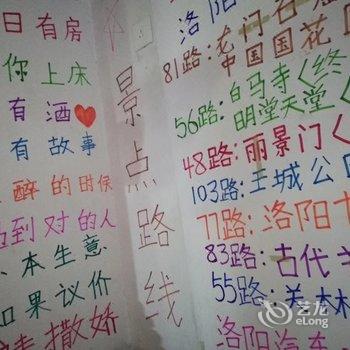 日有房
你上床
有酒
有故事
醉的时候
到对的人
本生意
如果议价
请撒娇
景点路线
洛阳
81路:龙门石
中国国花
56路:白马寺<终
明堂天堂<
48路:丽景门<
103路:王城公
77路:洛阳
83路:古代
55路:关林
洛阳汽车
艺龙
eLong